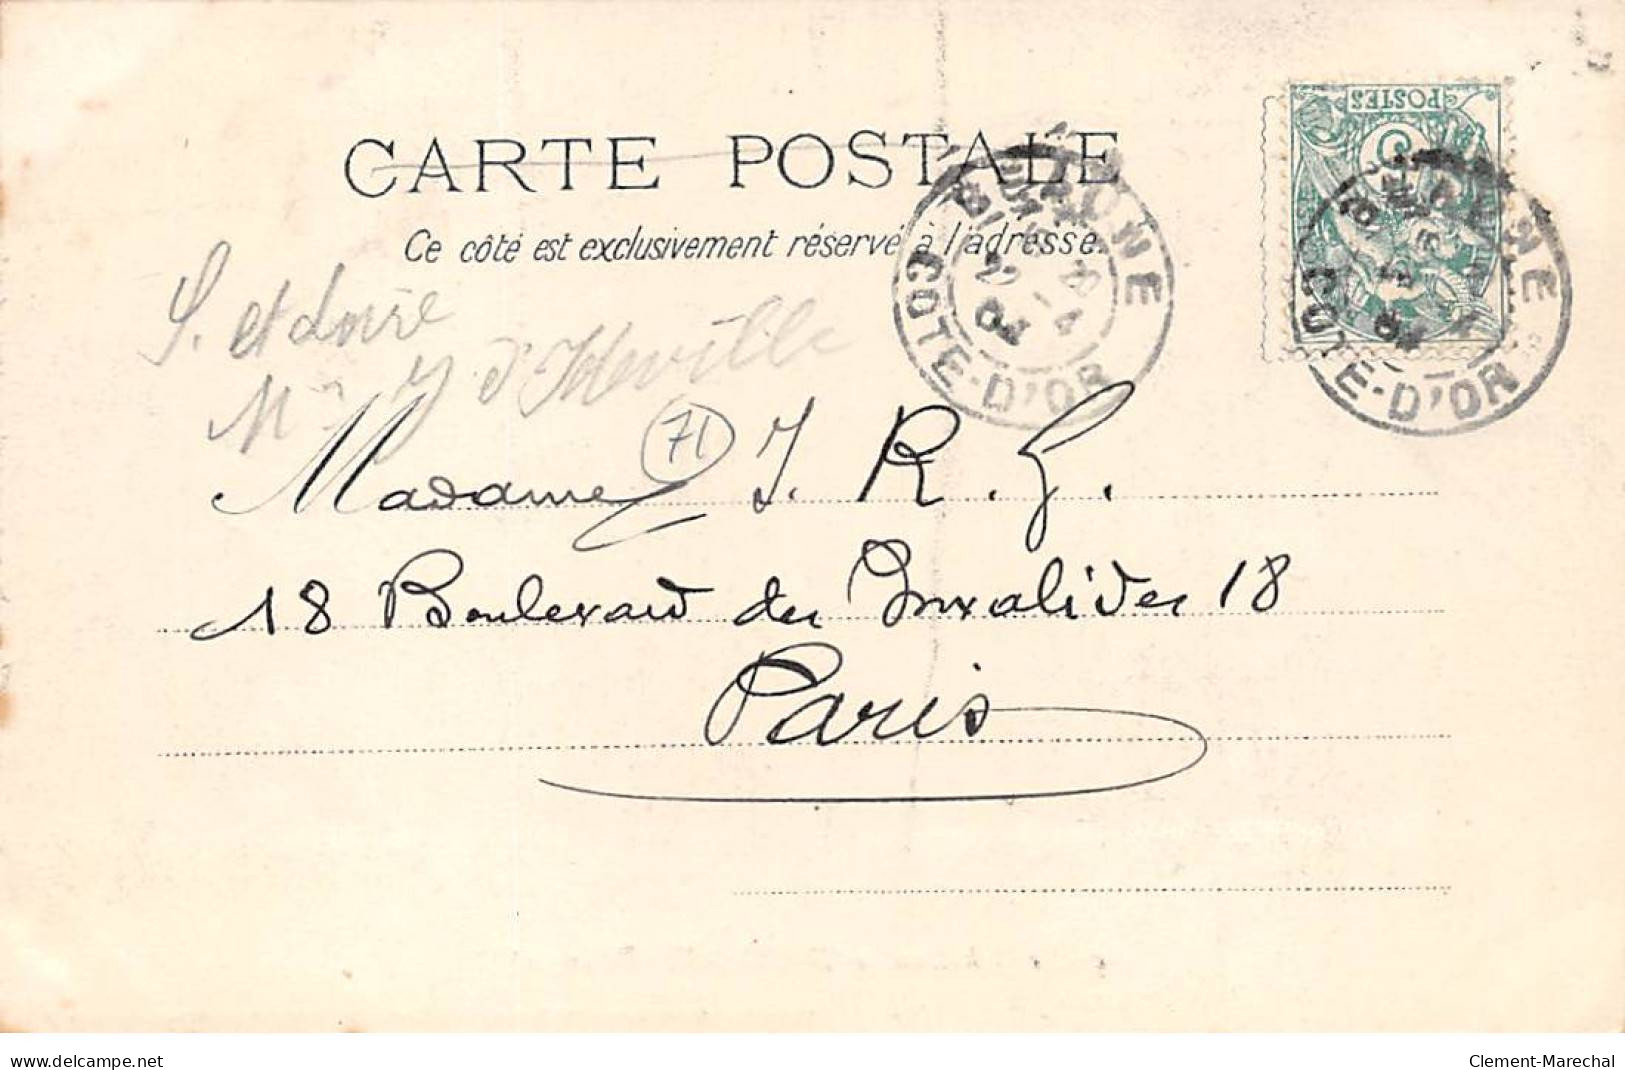 POSTES
5
CARTE POSTALE
Ce côté est exclusivement réservé à l'adresse.
BEAUNE
COTE-D'OR
BEAUNE
COTE-D'OR
S. et Loire
d'Ideville
71
Madame J. R. G.
18 Boulevard des Invalides 18
Paris
www.delcampe.net
Clement-Marechal